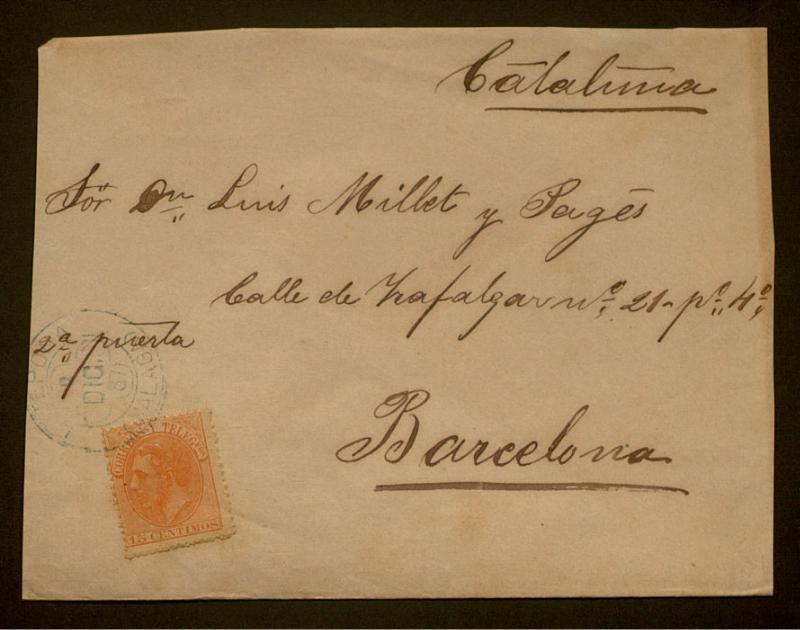 Cataluña
Sör Dn Luis Millet y Pagés
Calle de Trafalgar nº 21 - pº 4º
2ª puerta
Barcelona
DIC
CORREOS Y TELEGFS
15 CENTIMOS